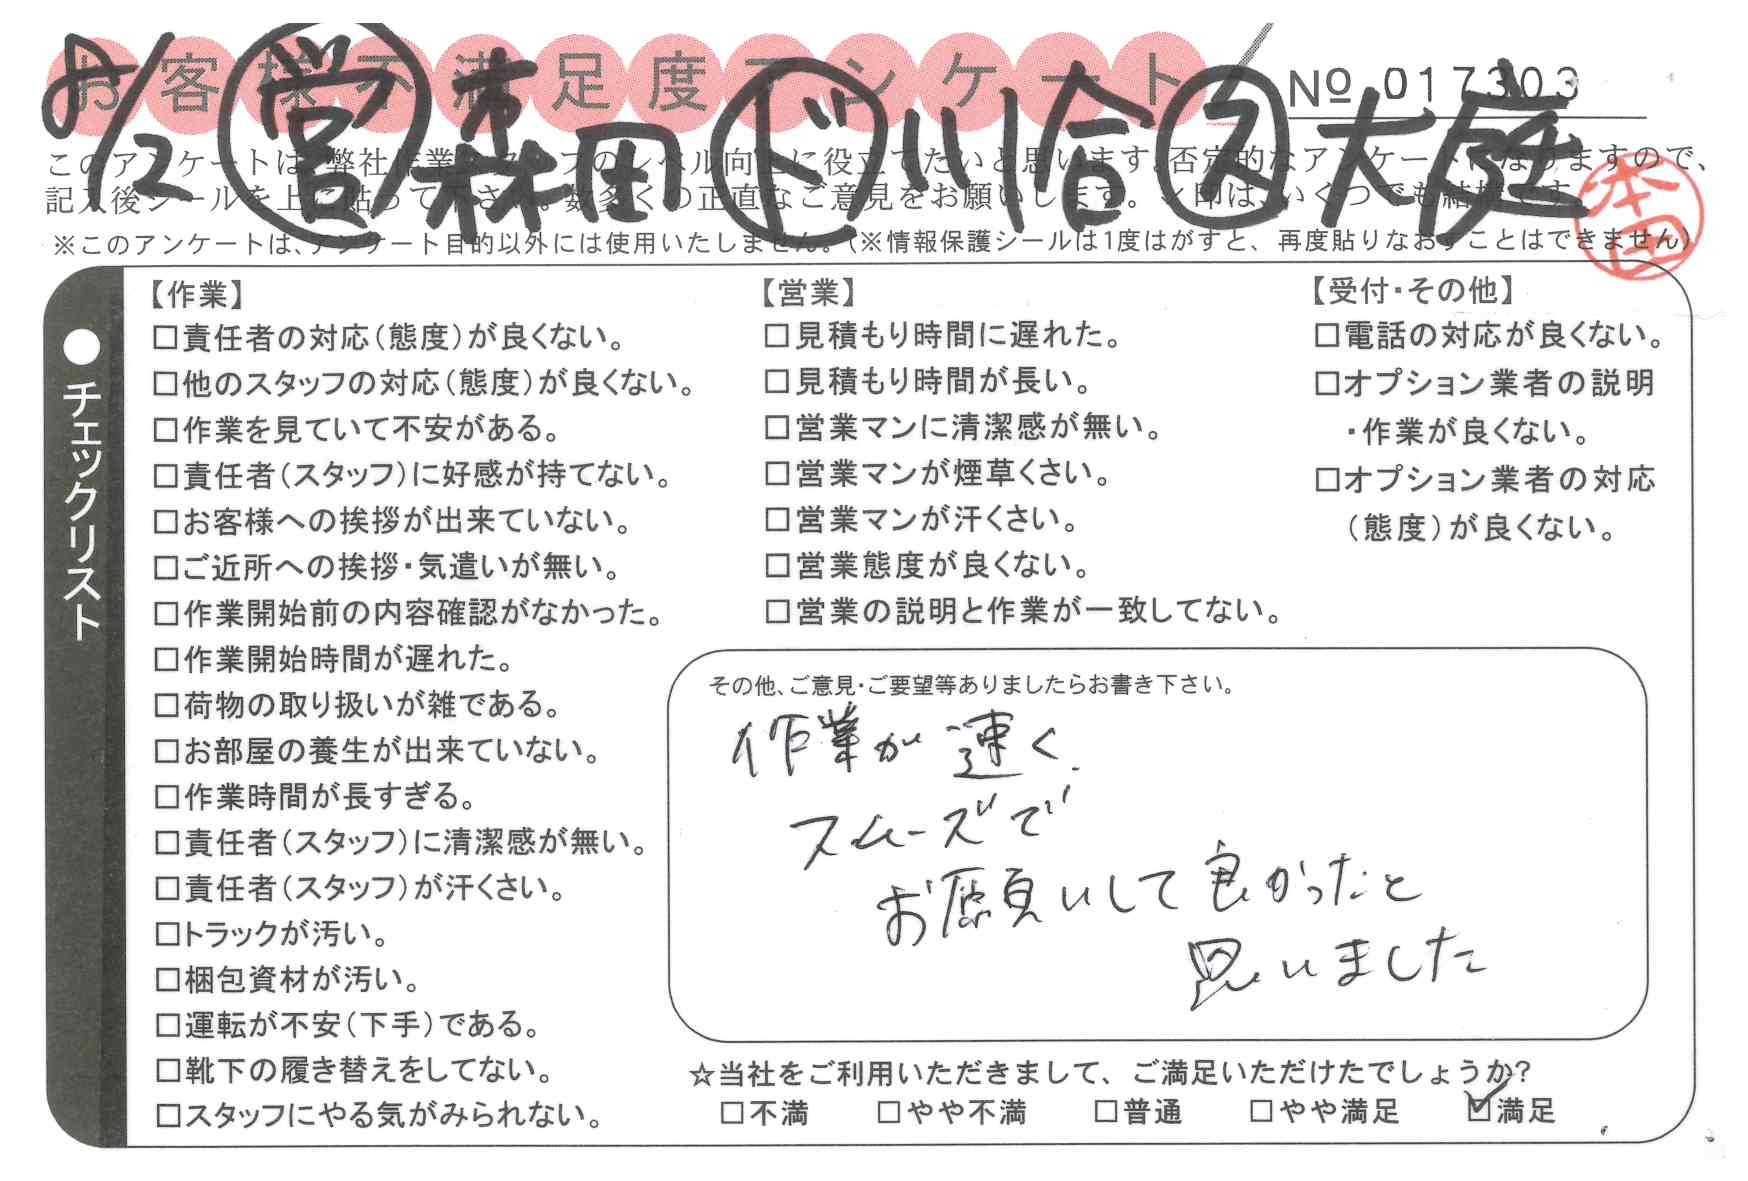 お客様不満足度アンケート
№ 017303
8/12 営 森田 ド 川合 ス 大庭
このアンケートは、弊社作業スタッフのレベル向上に役立てたいと思います。否定的なアンケートになりますので、
記入後シールを上に貼って下さい。数多くの正直なご意見をお願いします。✓印は、いくつでも結構です。
※このアンケートは、アンケート目的以外には使用いたしません。(※情報保護シールは1度はがすと、再度貼りなおすことはできません)
●チェックリスト
【作業】
□責任者の対応(態度)が良くない。
□他のスタッフの対応(態度)が良くない。
□作業を見ていて不安がある。
□責任者(スタッフ)に好感が持てない。
□お客様への挨拶が出来ていない。
□ご近所への挨拶・気遣いが無い。
□作業開始前の内容確認がなかった。
□作業開始時間が遅れた。
□荷物の取り扱いが雑である。
□お部屋の養生が出来ていない。
□作業時間が長すぎる。
□責任者(スタッフ)に清潔感が無い。
□責任者(スタッフ)が汗くさい。
□トラックが汚い。
□梱包資材が汚い。
□運転が不安(下手)である。
□靴下の履き替えをしてない。
□スタッフにやる気がみられない。
【営業】
□見積もり時間に遅れた。
□見積もり時間が長い。
□営業マンに清潔感が無い。
□営業マンが煙草くさい。
□営業マンが汗くさい。
□営業態度が良くない。
□営業の説明と作業が一致してない。
【受付・その他】
□電話の対応が良くない。
□オプション業者の説明
・作業が良くない。
□オプション業者の対応
(態度)が良くない。
その他、ご意見・ご要望等ありましたらお書き下さい。
作業が速く
スムーズで
お願いして良かったと
思いました
☆当社をご利用いただきまして、ご満足いただけたでしょうか?
□不満 □やや不満 □普通 □やや満足 ☑満足